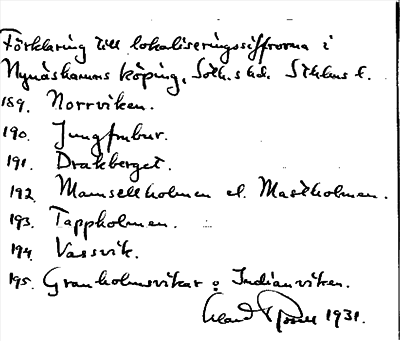 Förklaring till lokaliseringssiffrorna i
Nynäshamns köping, Söt.s hd. Sthlms l.
189. Norrviken.
190. Jungfrubur.
191. Drakberget.
192. Mamsellholmen el. Mastholmen.
193. Tappholmen.
194. Vassvik.
195. Granholmsvikar o Indianviken.
1931.